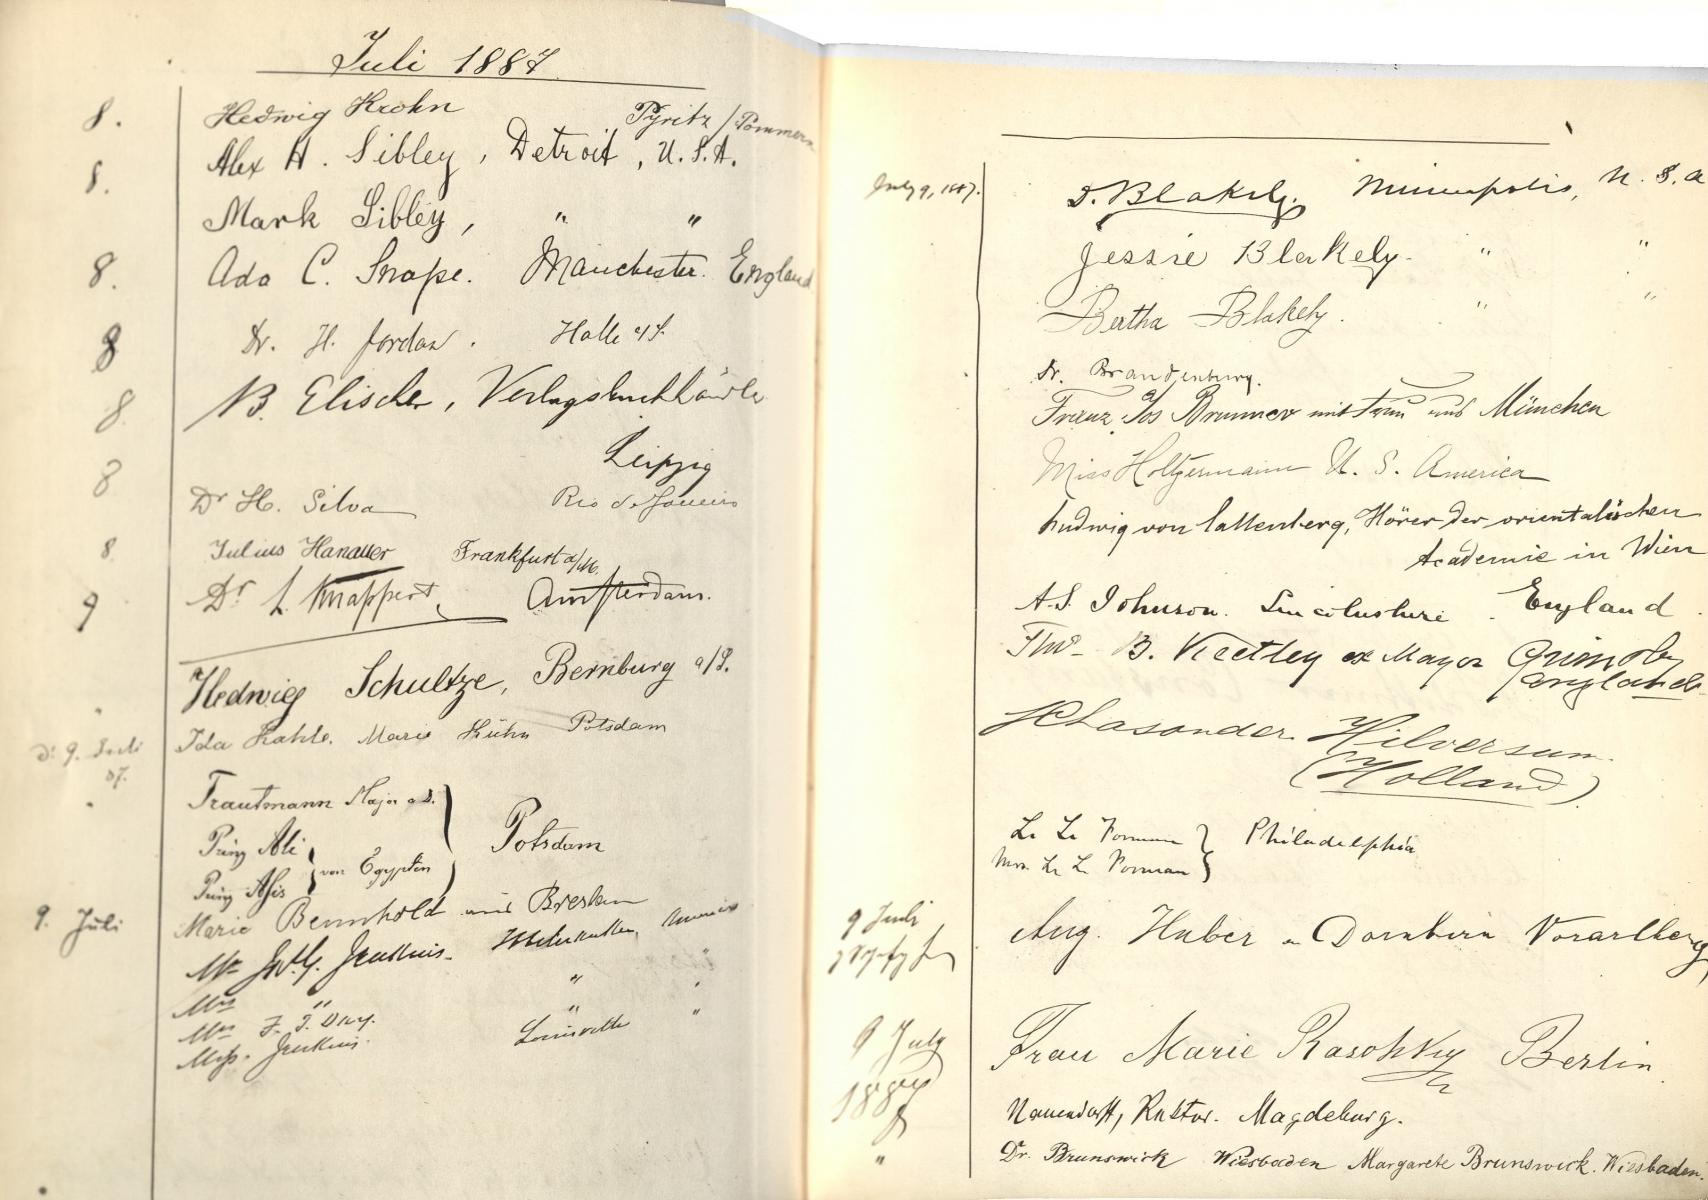 Juli 1887
8. Hedwig Krohn Pyritz / Pommern
8. Alex H. Sibley, Detroit, U.S.A.
Mark Sibley, " "
8. Ada C. Snape. Manchester. England
8 Dr. H. Jordan. Halle a/S.
8. B. Elischer, Verlagsbuchhändler
Leipzig
8 Dr H. Silva Rio de Janeiro
8. Julius Hanauer Frankfurt a/M.
9 Dr L. Knappert, Amsterdam.
Hedwig Schultze, Bernburg a/S.
d. 9. Juli 87. Ida Kahle. Marie Kühn Potsdam
Trautmann Major a.D.
Prinz Ali
von Egypten
Potsdam
Prinz Asis
9. Juli Marie Bennhold und
Mr Jenkins.
Mrs " "
Mrs F. T. Day. "
Miss. Jenkins. Louisville "
July 9, 1887. D. Blakely. Minneapolis, U.S.A
Jessie Blakely. " "
Bertha Blakely. " "
Dr. Brandenburg.
Franz Jos Brunner mit Frau München
Miss Holtzermann U. S. America
Ludwig von Callenberg, Hörer der orientalischen
Academie in Wien
A.S. Johnson. Lincolnshire. England.
Thos B. Keetley ex Mayor Grimsby
England
Lasonder Hilversum.
(Holland)
L. L. Forman
Mrs. L. L. Forman
Philadelphia
9 Juli Aug. Huber Dornbirn Vorarlberg
9 July 1887 Frau Marie Raschky Berlin
Nauendorff, Rektor. Magdeburg.
" Dr. Brunswick Wiesbaden Margarete Brunswick. Wiesbaden.